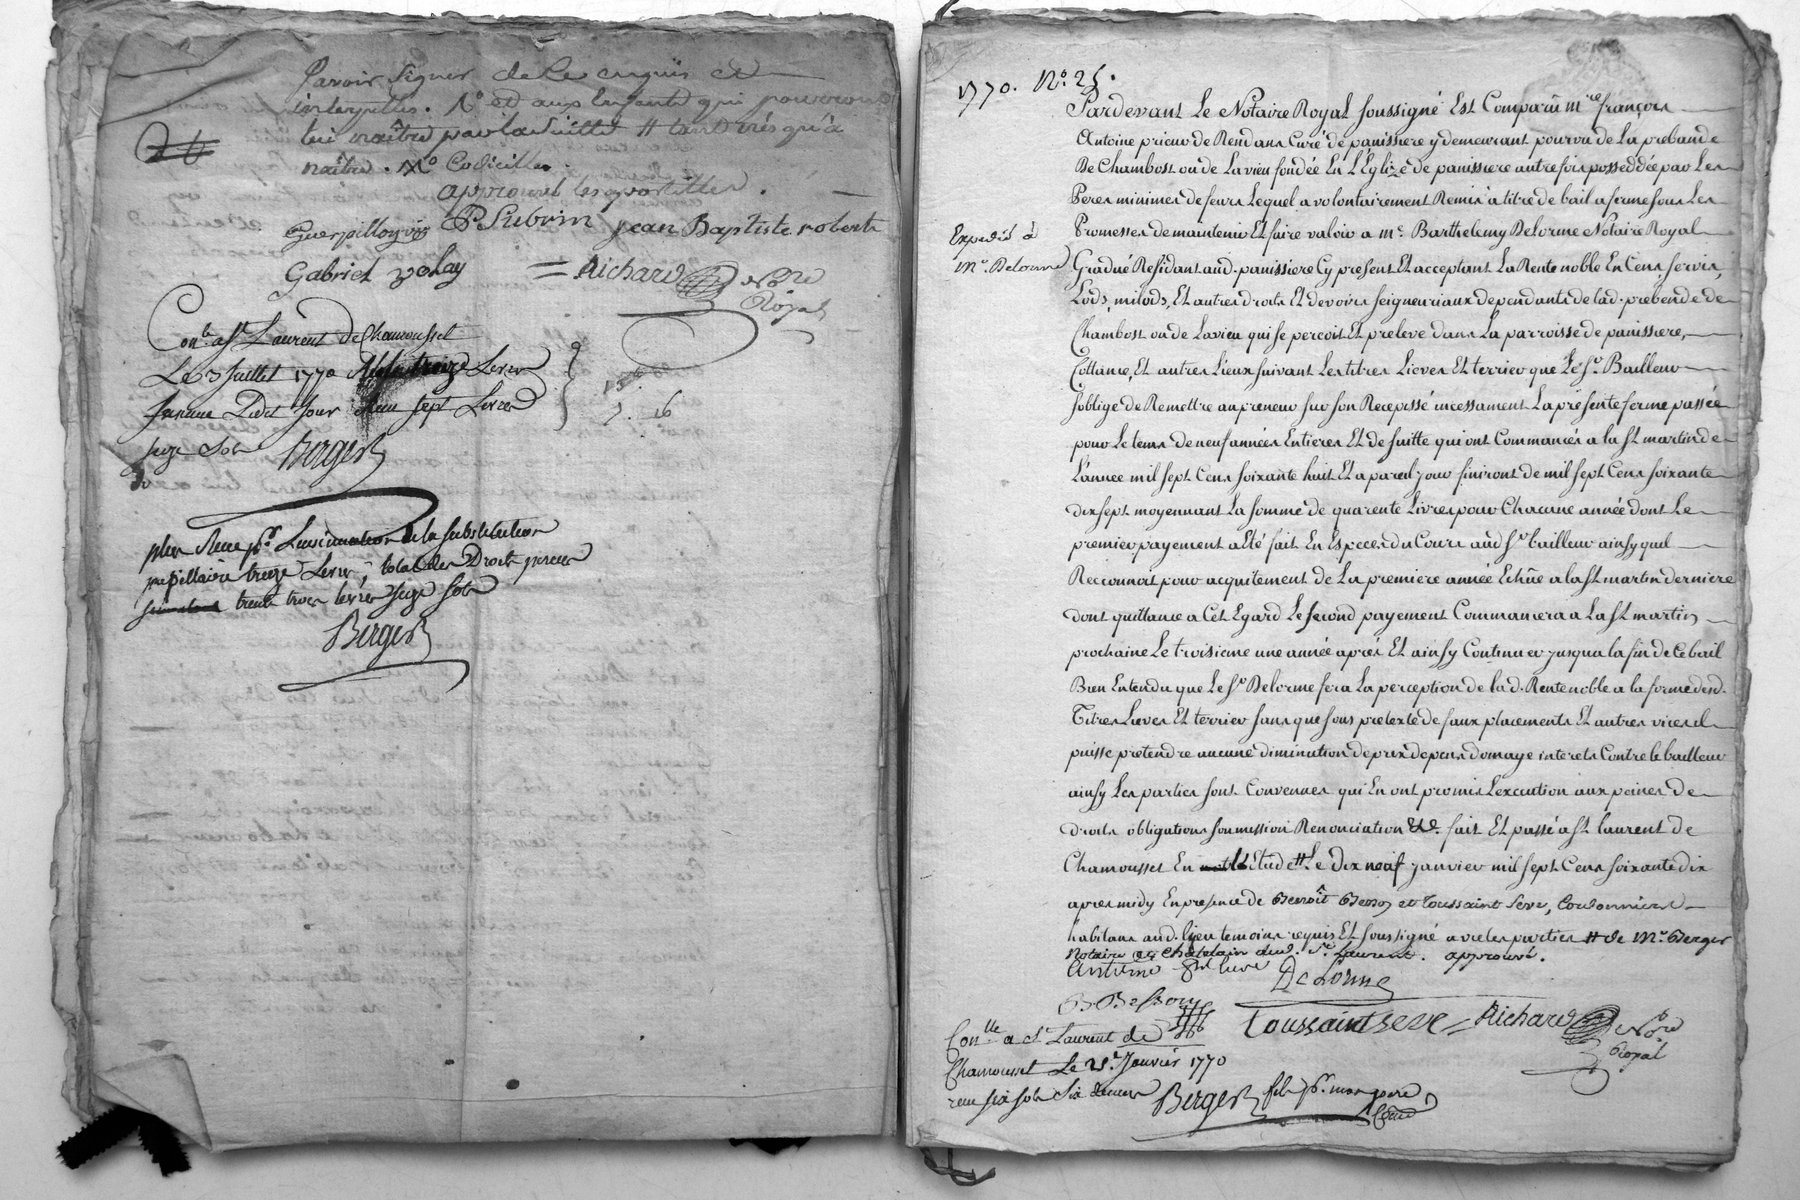 savoir signer de ce enquis et
interpellés. No et aux Enfants qui pourront
lui naître par la suitte # tant nés qu'à
naître. Codicille.
approuvé les apostilles.
Guerpillon P Subrin jean Baptiste robert
Gabriel = Richard Nore
Royal
Con.lé a St Laurent De Chamousset
Le 3 Juillet 1770 treize Livres
Dud jour sept Livres
7. 16
seize Sols Berger
plus Reçu pr. Linsinuation de la substitution
pupillaire treize Livres, total des Droits perçus
trente trois Livres seize Sols
Berger
1770. No. 25.
Pardevant Le Notaire Royal soussigné Est Comparû mre françois
Antoine prieur de Rendans Curé de panissiere y demeurant pourvu de La prebande
De Chambost ou de Lavieu fondée En L'Eglize de panissiere autrefois possedée par Les
Peres minimes de feurs Lequel a volontairement Remis à titre de bail a ferme sous Les
Expedié à
Promesses de maintenir Et faire valoir a me. Barthelemy Delorme Notaire Royal
Me. Delorme
Gradué Residant aud. panissiere Cy present Et acceptant La Rente noble En Cens, servis,
Lods, milods, Et autres droits Et devoirs seigneuriaux dependants de lad. prebende de
Chambost ou de Lavieu qui se perçoit Et preleve dans La parroisse de panissiere,
Cottance, Et autres Lieux suivant Les titres Lieves Et terrier que Le Sr. Bailleur
s'oblige de Remettre au preneur sur son Recepissé incessament La presente ferme passée
pour Le tems de neuf années Entieres Et de suitte qui ont Commancés a la St martin de
L'année mil sept Cens soixante huit Et a pareil jour finiront de mil sept Cens soixante
dix sept moyennant La somme de quarente Livres pour Chacune année dont Le
premier payement a Eté fait En Especes du Cours aud Sr. bailleur ainsy quil
Reconnoit pour acquitement de La premiere année Echûe a la St martin derniere
dont quittance a Cet Egard Le second payement Commancera a La St martin
prochaine Le troisieme une année aprés Et ainsy Continuer jusqua la fin de Ce bail
Bien Entendu que Le Sr. Delorme fera La perception de lad. Rente noble a la forme desd.
Titres Lieves Et terrier sans que sous pretexte de faux placements Et autres vices il
puisse pretendre aucune diminution de prix depens domage interets Contre le bailleur
ainsy Les parties sont Convenues qui En ont promis L'execution aux peines de
droits obligations soumission Renonciation &c. fait Et passé a St laurent de
Chamousset En Etude # Le Dix neuf janvier mil sept Cens soixante dix
apres midy En presence de Benoît Besson et Toussaint Seve, Cordonniers
habitans aud. lieu temoins requis Et soussigné avec les parties # de Me. Berger
Notaire et Châtelain dud. St. Laurent. approuvé.
Antoine Delorme
B. Besson
Toussaint Seve = Richard Nore
Royal
Con.lle a St Laurent de
Chamousset Le 25. Janvier 1770
reçu six sols six deniers Berger fils pr. mon pere